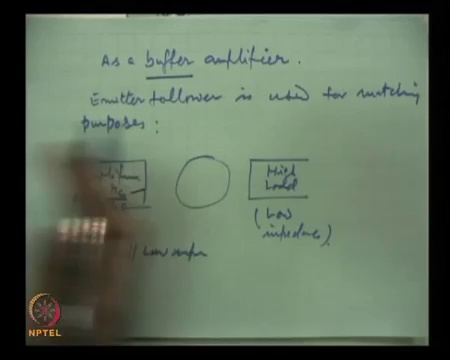 As a buffer amplifier.
Emitter follower is used for matching
purposes :
High
Load
(Low
impedance)
Low
NPTEL